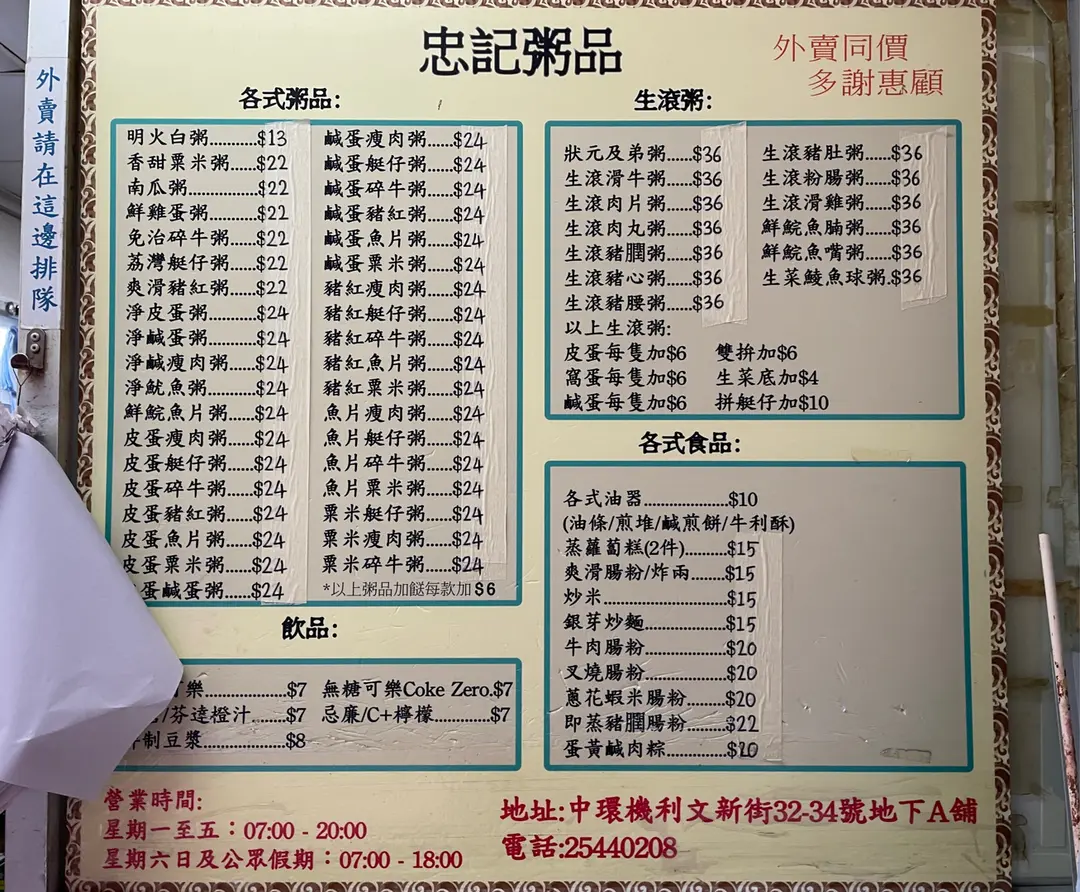 外賣請在這邊排隊
忠記粥品
外賣同價
多謝惠顧
各式粥品:
明火白粥.........$13
香甜粟米粥...$22
南瓜粥.............$22
鮮雞蛋粥........$22
免治碎牛粥.....$22
荔灣艇仔粥.....$22
爽滑豬紅粥.....$22
淨皮蛋粥........$24
淨鹹蛋粥........$24
淨鹹瘦肉粥...$24
淨魷魚粥........$24
鮮鯇魚片粥...$24
皮蛋瘦肉粥.....$24
皮蛋艇仔粥.....$24
皮蛋碎牛粥......$24
皮蛋豬紅粥......$24
皮蛋魚片粥......$24
皮蛋粟米粥......$24
蛋鹹蛋粥......$24
鹹蛋瘦肉粥.....$24
鹹蛋艇仔粥.....$24
鹹蛋碎牛粥.....$24
鹹蛋豬紅粥.....$24
鹹蛋魚片粥.....$24
鹹蛋粟米粥.....$24
豬紅瘦肉粥.....$24
豬紅艇仔粥.....$24
豬紅碎牛粥.....$24
豬紅魚片粥.....$24
豬紅粟米粥.....$24
魚片瘦肉粥.....$24
魚片艇仔粥.....$24
魚片碎牛粥.....$24
魚片粟米粥.....$24
粟米艇仔粥.....$24
粟米瘦肉粥.....$24
粟米碎牛粥.....$24
*以上粥品加餸每款加$6
生滾粥:
狀元及弟粥.....$36
生滾滑牛粥.....$36
生滾肉片粥.....$36
生滾肉丸粥.....$36
生滾豬膶粥.....$36
生滾豬心粥.....$36
生滾豬腰粥.....$36
生滾豬肚粥.....$36
生滾粉腸粥.....$36
生滾滑雞粥.....$36
鮮鯇魚腩粥.....$36
鮮鯇魚嘴粥.....$36
生菜鯪魚球粥.$36
以上生滾粥:
皮蛋每隻加$6 雙拚加$6
窩蛋每隻加$6 生菜底加$4
鹹蛋每隻加$6 拼艇仔加$10
各式食品:
各式油器....................$10
(油條/煎堆/鹹煎餅/牛利酥)
蒸蘿蔔糕(2件)..........$15
爽滑腸粉/炸兩........$15
炒米............................$15
銀芽炒麵...................$15
牛肉腸粉...................$20
叉燒腸粉...................$20
蔥花蝦米腸粉..........$20
即蒸豬膶腸粉..........$22
蛋黃鹹肉粽...............$20
飲品:
樂....................$7 無糖可樂Coke Zero.$7
/芬達橙汁........$7 忌廉/C+檸檬.............$7
制豆漿....................$8
營業時間:
星期一至五：07:00 - 20:00
星期六日及公眾假期：07:00 - 18:00
地址:中環機利文新街32-34號地下A舖
電話:25440208